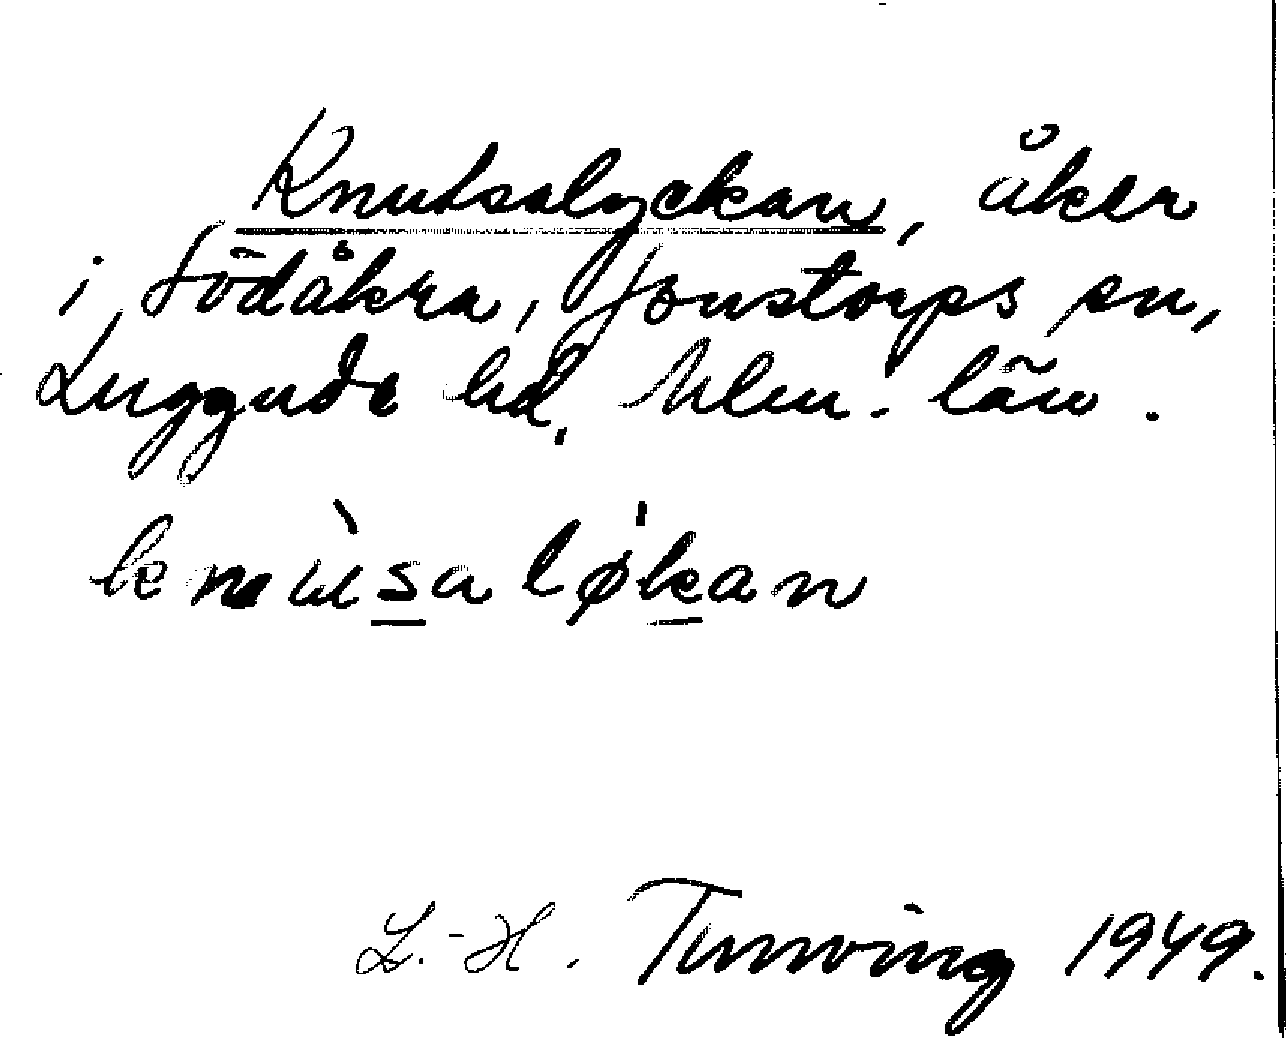 Knutsalyckan, åker
i Södåkra, Jonstorps sn,
Luggude hd. Mlm. län.
L.-H. Tunving 1949.